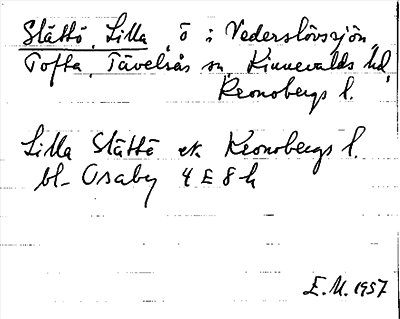 Slättö, Lilla, ö i Vederslövssjön,
Tofta, Tävelsås sn, Kinnevalds hd,
Kronobergs l.
Lilla Slättö ek. Kronobergs l.
bl. Osaby 4 E 8 h
E.M. 1957